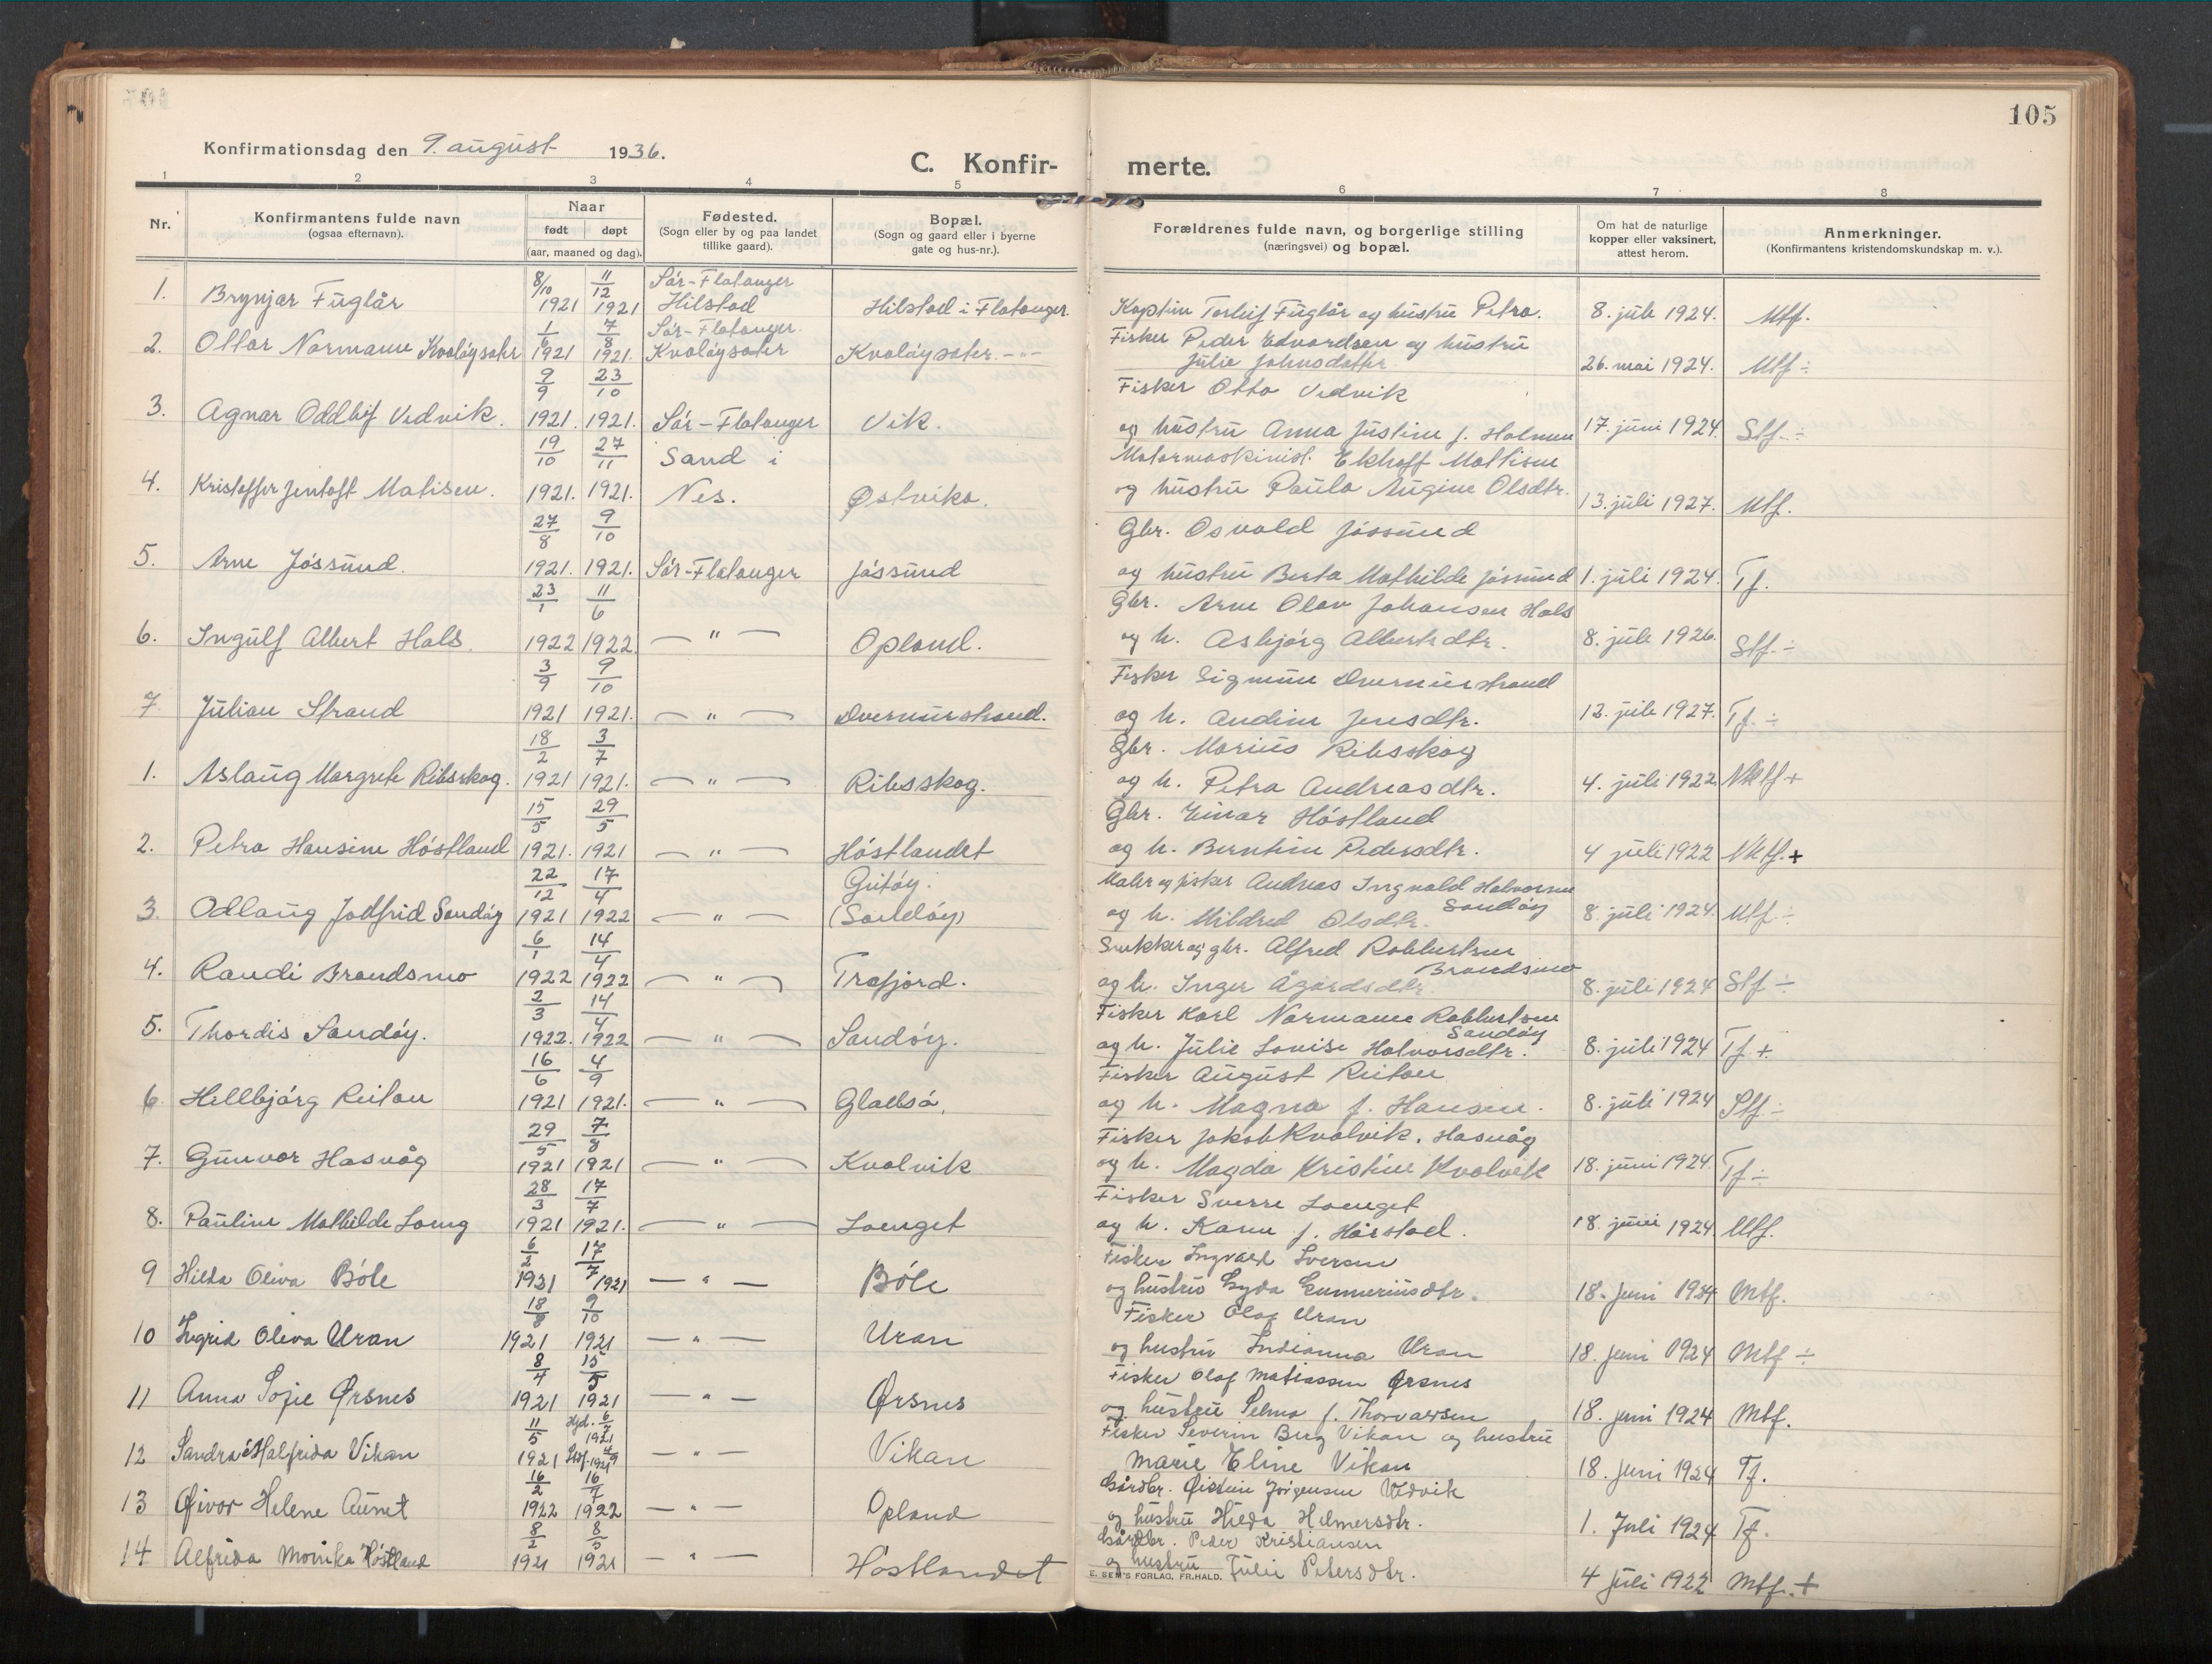 105
Konfirmationsdag den 9. august 1936.
C. Konfir-
merte.
1 2 3 4 5 6 7 8
Nr.
Konfirmantens fulde navn
(ogsaa efternavn).
Naar
født døpt
(aar, maaned og dag).
Fødested.
(Sogn eller by og paa landet
tillike gaard).
Bopæl.
(Sogn og gaard eller i byerne
gate og hus-nr.).
Forældrenes fulde navn, og borgerlige stilling
(næringsvei) og bopæl.
Om hat de naturlige
kopper eller vaksinert,
attest herom.
Anmerkninger.
(Konfirmantens kristendomskundskap m. v.).
1. Brynjar Fuglår 8/10 1921 11/12 1921 Sör-Flatanger Hilstad Hilstad i Flatanger. Kaptein Torleif Fuglår og hustru Petra. 8. juli 1924. Mtf.
2. Ottar Normann Kvalöysæter 1/6 1921 7/8 1921. Sör-Flatanger. Kvalöysæter Kvalöysæter. -"- Fisker Peder Edvardsen og hustru
Julie Johnsdatter 26. mai 1924. Mtf ÷
3. Agnar Oddleif Vedvik. 9/9 1921. 23/10 1921. Sör-Flatanger Vik. Fisker Otto Vedvik
og hustru Anna Justine f. Holmen 17. juni 1924. Stf. ÷
4. Kristoffer Jentoft Matisen. 19/10 1921. 27/11 1921. Sand i Nes. Østvika. Motormaskinist. Ekhoff Mattisen
og hustru Paula Augine Olsdtr. 13. juli 1927. Mtf.
5. Arne Jössund. 27/8 1921. 9/10 1921. Sör-Flatanger Jössund Gbr. Osvald Jössund
og hustru Berta Mathilde Jössund 1. juli 1924. Tf.
6. Ingulf Albert Hals. 23/1 1922 11/6 1922. — " — Opland. Gbr. Arne Olav Johansen Hals
og h. Asbjörg Albertsdtr. 8. juli 1926. Stf. ÷
7. Julian Strand 3/9 1921 9/10 1921. — " — Dvernesstrand. Fisker Sigmun Dvernesstrand
og h. Andine Jensdtr. 12. juli 1927. Tf. ÷
1. Aslaug Margrete Ribsskog. 18/2 1921 3/7 1921. — " — Ribsskog. Gbr. Marius Ribsskog
og h. Petra Andreasdtr. 4. juli 1922 Mtf +
2. Petra Hansine Höstland 15/5 1921. 29/5 1921 — " — Höstlandet Gbr. Einar Höstland
og h. Berntine Pedersdtr. 4 juli 1922 Mtf. +
3. Odlaug Jodfrid Sandöy 22/12 1921 17/4 1922 — " — Gutöy. (Sandöy) Maler og fisker Andreas Ingvald Halvorsen Sandöy
og h. Mildred Olsdtr. 8. juli 1924. Mtf ÷
4. Randi Brandsmo 6/1 1922 14/4 1922 — " — Trafjord. Snekker og gbr. Alfred Robbertsen Brandsmo
og h. Inger Ågårdsdtr. 8. juli 1924 Stf ÷
5. Thordis Sandöy. 2/3 1922. 14/4 1922 — " — Sandöy. Fisker Karl Normann Robbertsen Sandöy
og h. Julie Lovise Halvorsdtr. 8. juli 1924 Tf +
6. Hellbjörg Reitan 16/6 1921 4/9 1921. — " — Gladsö. Fisker August Reitan
og h. Magna f. Hansen. 8. juli 1924 Stf ÷
7. Gunvor Hasvåg 29/5 1921 7/8 1921 — " — Kvalvik Fisker Jakob Kvalvik. Hasvåg
og h. Magda Kristine Kvalvik 18. juni 1924. Tf ÷
8. Pauline Mathilde Loeng 28/3 1921 17/7 1921. — " — Loenget Fisker Sverre Loenget
og h. Karen f. Hårstad. 18. juni 1924. Mtf.
9 Hilda Oliva Böle 6/2 1921 17/7 1921 — " — Böle Fisker Ingvald Iversen
og hustru Gyda Gunneriusdtr. 18. Juni 1924 Mtf.
10 Ingrid Oliva Uran 18/8 1921 9/10 1921 — " — Uran Fisker Olaf Uran
og hustru Indianna Uran 18. juni 1924 Mtf ÷
11 Anna Sofie Ørsnes 8/4 1921 15/5 1921 — " — Ørsnes Fisker Olaf Matiassen Ørsnes
og hustru Selma f. Thorvaldsen 18. juni 1924 Mtf.
12 Sandra Alfrida Vikan 11/5 1921 Hjd. 6/7 1921 Stf. 4/9 1921 — " — Vikan Fisker Severin Berg Vikan og hustru
Marie Eline Vikan 18. Juni 1924 Tf.
13 Øivor Helene Aunet 16/2 1922 16/7 1922 — " — Opland Gårdbr. Øistein Jörgensen Vedvik
og hustru Hilda Helmersdtr. 1. Juli 1924 Tf.
14 Alfrida Monika Höstland 8/2 1921 8/5 1921 — " — Höstlandet Gårdbr. Peder Kristiansen
og hustru Julie Petersdtr. 4 Juli 1922 Mtf. +
E. SEM'S FORLAG, FR.HALD.